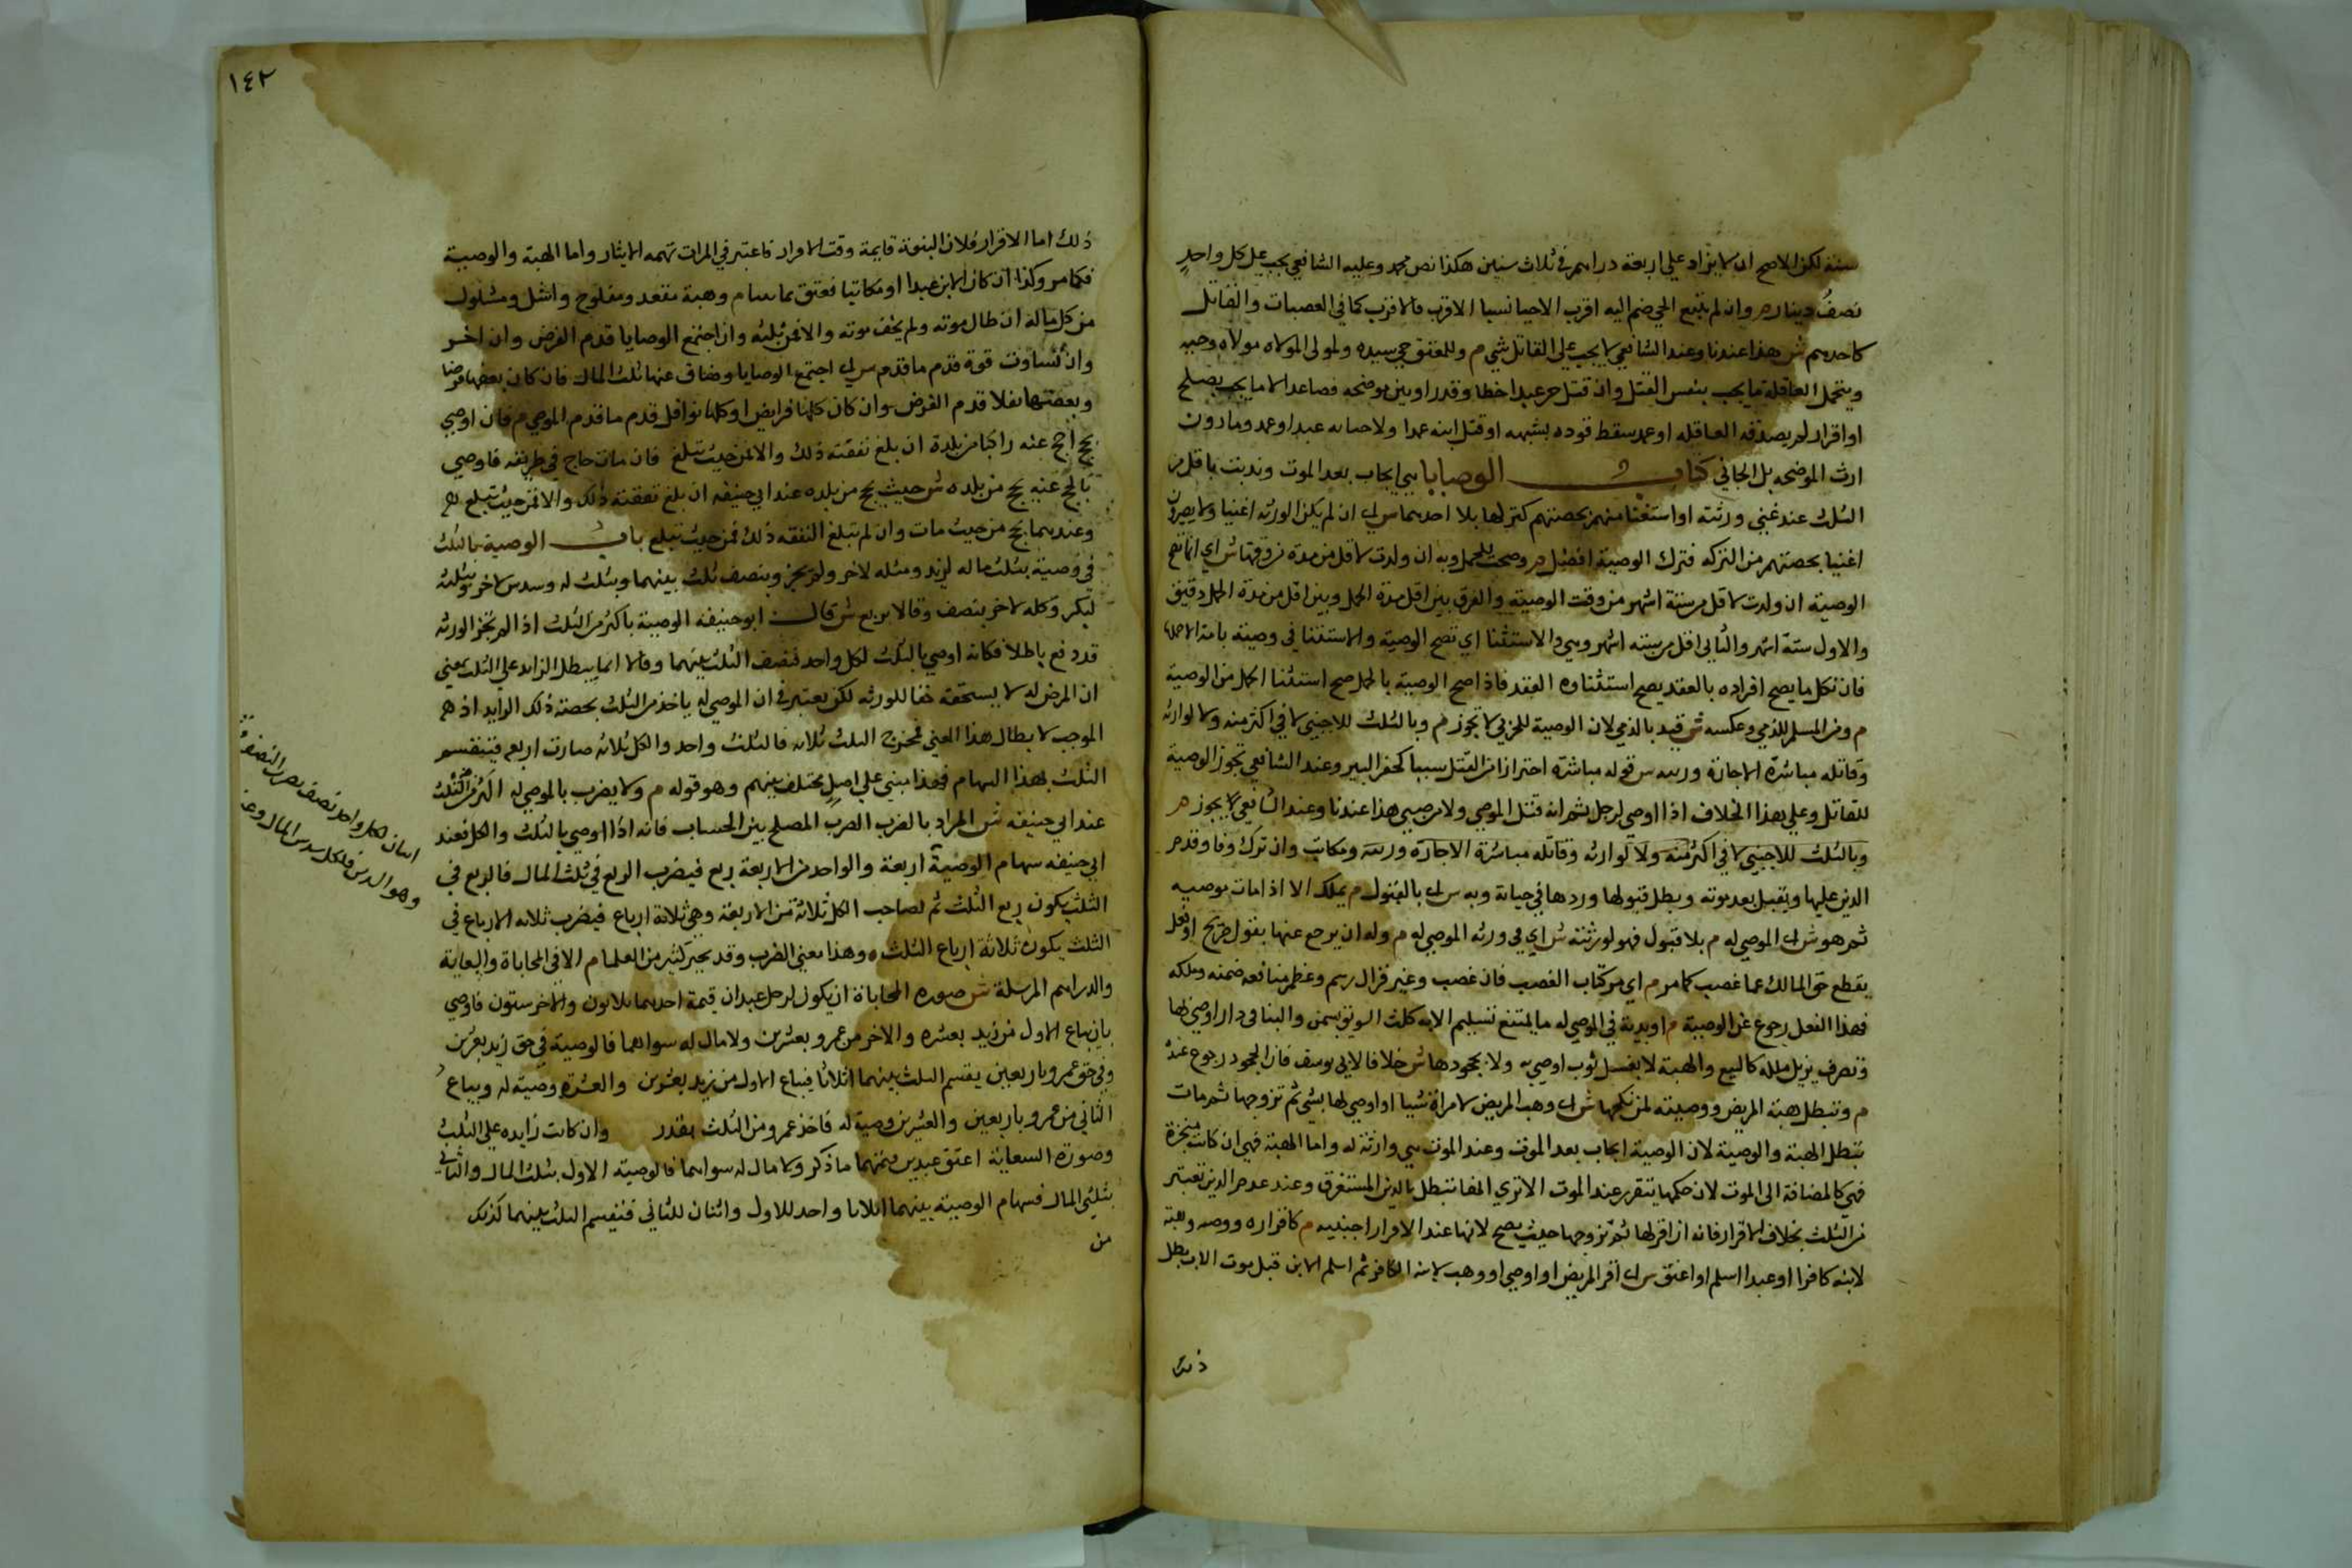 سنة لكن الاصح ان لا يزاد علي اربعة دراهم في ثلاث سنين هكذا نص محمد وعليه الشافعي يجب علي كل واحد
نصف دينار م وان لم يتسع الحي ضم اليه اقرب الاحيا نسبا الاقرب فالاقرب كما في العصبات والقاتل
كاحدهم ش هذا عندنا وعند الشافعي لا يجب علي القاتل شي م وللمعتق حي سيده ولمولي الموالاه مولاه وحيه
ويتحمل العاقلة ما يجب بنفس القتل وان قتل حر عبدا خطا وقدر اوش موضحه فصاعدا لا ما يجب بصلح
او اقرار لم يصدقه العاقله او عمد سقط قوده بشبهه او قتل ابنه عمدا ولا جنايه عبد او عمد وما دون
ارش الموضحه بل الجاني كتاب الوصايا هي ايجاب بعد الموت وندبت باقل من
الثلث عند غني ورثته او استغنائهم بحصتهم كتركها بلا احدهما ش اي ان لم يكن الورثه اغنيا ولا يصيرون
اغنيا بحصتهم من التركه فترك الوصية افضل م وصحت للحمل وبه ان ولدت لاقل من مدته من وقتها ش اي انما تصح
الوصية ان ولدت لاقل من ستة اشهر من وقت الوصية والفرق بين اقل مدة الحمل وبين اقل من مدة الحمل دقيق
والاول ستة اشهر والثاني اقل من ستة اشهر م وهي والاستثنا اي تصح الوصية والاستثنا في وصية بامة الا حملها
فان كل ما يصح افراده بالعقد يصح استثناوه من العقد فاذا صح الوصية بالحمل صح استثنا الحمل من الوصية
م ومن المسلم للذمي وعكسه ش قيد بالذمي لان الوصية للحربي لا تجوز م وبالثلث للاجنبي لا في اكثر منه ولا لوارثه
وقاتله مباشرة الا باجازة ورثته ش قوله مباشرة احتراز عن القتل سببا كحفر البير وعند الشافعي تجوز الوصية
للقاتل وعلي هذا الخلاف اذا اوصي لرجل ثم انه قتل الموصي ولا من صبي هذا عندنا وعند الشافعي يجوز م
وبالثلث للاجنبي لا في اكثر منه ولا لوارثه وقاتله مباشرة الا باجازة ورثته ومكاتب وان ترك وفا وقدم
الدين عليها ويقبل بعد موته وبطل قبولها وردها في حياته وبه ش اي بالقبول م يملك الا اذا مات موصيه
ثم هو ش اي الموصي له م بلا قبول فهو لورثته ش اي في ورثه الموصي له م وله ان يرجع عنها بقول صريح او فعل
يقطع حق المالك عما غصب كما مر م اي مر كتاب الغصب فان غصب وغير فزال اسم وعظم منافعه ضمنه وملكه
فهذا الفعل رجوع عن الوصية م او يزيد في الموصي له ما يمتنع تسليم الا به كلت السويق بسمن والبنا في دار اوصي بها
وتصرف يزيل ملكه كالبيع والهبة لا بغسل ثوب اوصي به ولا بجحودها ش خلافا لابي يوسف فان الجحود رجوع عنده
م وتبطل هبة المريض ووصيته لمن نكحها ش اي وهب المريض لامراة شيا او اوصي لها بشي ثم تزوجها ثم مات
تبطل الهبة والوصية لان الوصية ايجاب بعد الموت وعند الموت هي وارثة له واما الهبة فهي ان كانت منجزة
فهي كالمضافة الي الموت لان حكمها يتقرر عند الموت الا تري انها تبطل بالدين المستغرق وعند عدم الدين تعتبر
من الثلث بخلاف الاقرار فانه ان اقر لها ثم تزوجها حيث يصح لانها عند الاقرار اجنبية م كاقراره ووصيته وهبته
لابنه كافرا او عبدا اسلم او اعتق ش اي اقر المريض او اوصي او وهب لابنه الكافر ثم اسلم الابن قبل موت الاب بطل
ذلك
١٤٢
ذلك اما الاقرار فلان البنوة قايمة وقت الاقرار فاعتبر في ايراث تهمه الايثار واما الهبة والوصية
فكما مر وكذا ان كان الابن عبدا او مكاتبا فعتق وهبة مقعد ومفلوج واشل ومسلول
من كل ماله ان طال موته ولم يخف موته والا فمن ثلثه وان اجتمع الوصايا قدم الفرض وان اخر
وان تساوت قوة قدم ما قدم ش اي اجتمع الوصايا وضاق عنها ثلث المال فان كان بعضها فرضا
وبعضها نفلا قدم الفرض وان كان كلها فرايض او كلها نوافل قدم ما قدم الموصي م فان اوصي
بحج احج عنه راكبا من بلده ان بلغ نفقته ذلك والا فمن حيث تبلغ فان مات حاج في طريقه فاوصي
بالحج عنه يحج من بلده ش حيث يحج من بلده عند ابي حنيفه ان بلغ نفقته ذلك والا فمن حيث تبلغ
وعندهما يحج من حيث مات وان لم تبلغ النفقه ذلك فمن حيث تبلغ باب الوصية بالثلث
في وصية بثلث ماله لزيد ومثله لاخر ولم يجز وينصف ثلث بينهما وبثلث له وسدس لاخر بثلثه
لبكر وكله لاخر ينصف وقالا يربع ش قال ابو حنيفه الوصية باكثر من الثلث اذا لم تجز الورثه
قد وقع باطلا فكانه اوصي بالثلث لكل واحد فينصف الثلث بينهما وقالا انما يبطل الزايد علي الثلث بمعني
ان الموصي له لا يستحقه حقا للورثه لكن يعتبر في ان الموصي له ياخذ من الثلث بحصة ذلك الزايد اذ
الموجب لابطال هذا المعني فمخرج الثلث ثلاثه فالثلث واحد والكل ثلاثه صارت اربعه فينقسم
الثلث بهذا السهام فهذا مبني علي اصل مختلف بينهم وهو قوله م ولا يضرب بالموصي له اكثر من الثلث
عند ابي حنيفه ش المراد بالضرب الضرب المصطلح بين الحساب فانه اذا اوصي بالثلث والكل فعند
ابي حنيفه سهام الوصية اربعة والواحد من الاربعة ربع فيضرب الربع في ثلث المال فالربع في
الثلث يكون ربع الثلث ثم لصاحب الكل ثلاثة من الاربعة وهي ثلاثة ارباع فيضرب ثلاثه الارباع في
الثلث يكون ثلاثة ارباع الثلث وهذا معني الضرب وقد يحير كثير من العلما م الا في المحاباة والسعاية
والدراهم المرسلة ش صوره المحاباة ان يكون لرجل عبدان قيمة احدهما ثلاثون والاخر ستون فاوصي
بان يباع الاول من زيد بعشره والاخر من عمرو بعشرين ولا مال له سواهما فالوصية في حق زيد بعشرين
وفي حق عمرو باربعين يقسم الثلث بينهما اثلاثا فيباع الاول من زيد بعشرين والعشرة وصيته له ويباع
الثاني من عمرو باربعين والعشرين وصية له فاخذ عمرو من الثلث بقدر وان كانت زايده علي الثلث
وصورة السعاية اعتق عبدين قيمتهما ما ذكر ولا مال له سواهما فالوصية الاول بثلث المال والثاني
بثلثي المال فسهام الوصية بينهما اثلاثا واحد للاول واثنان للثاني فيقسم الثلث بينهما كذلك
من
اثنان لكل واحد نصف يضرب النصف
وهو الدس فلكل سدس المال وعند